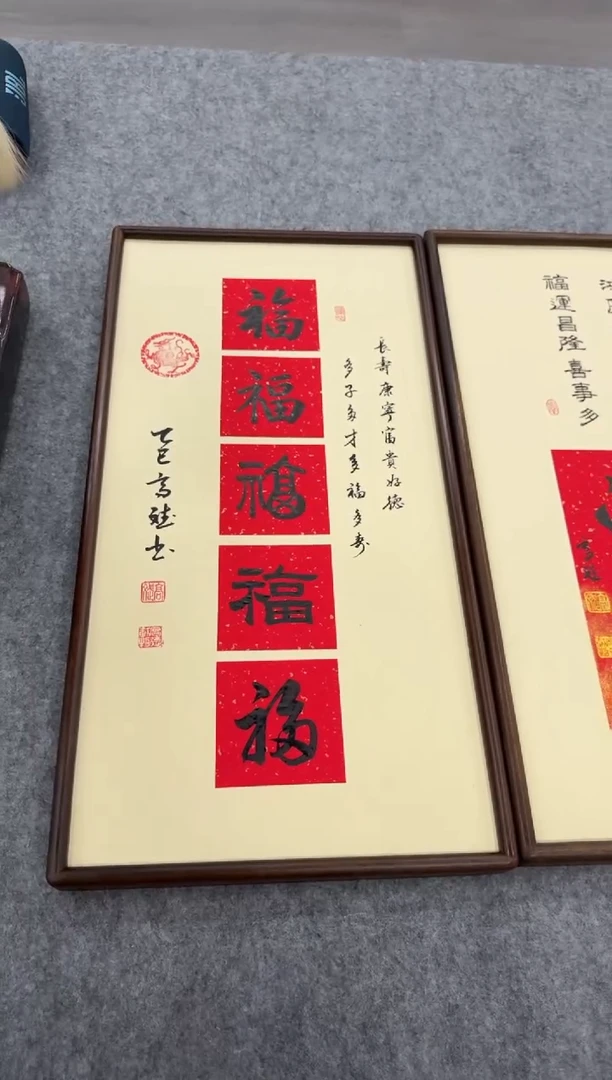 長壽康寧富貴好德
多子多才多福多壽
福
福
福
福
福
乙巳高斌书
福運昌隆喜事多